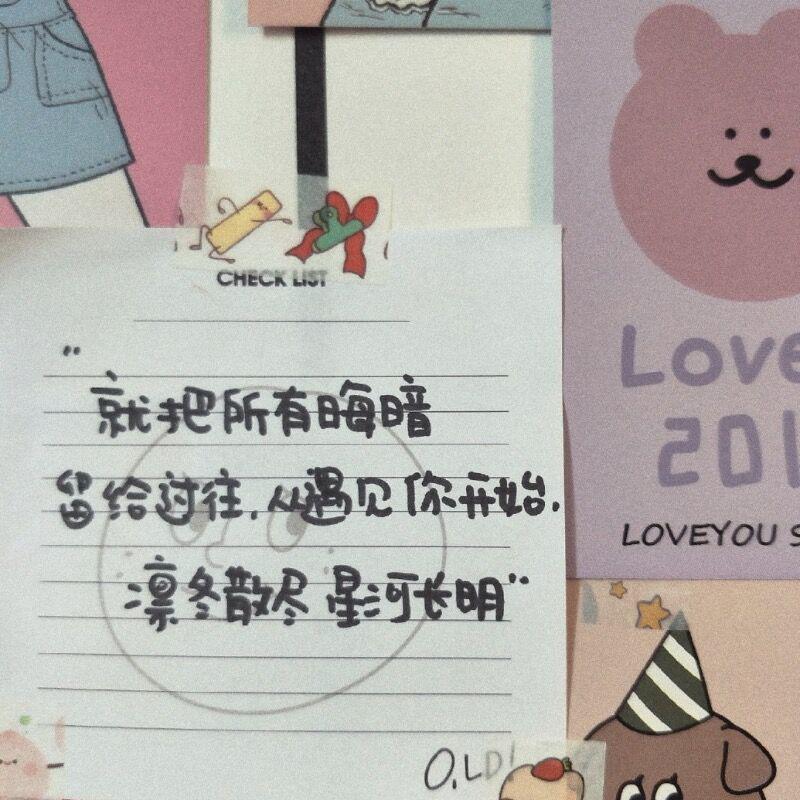 CHECK LIST
"就把所有晦暗
留给过往.从遇见你开始.
凛冬散尽 星河长明"
O.LD!
Love
201
LOVEYOU S